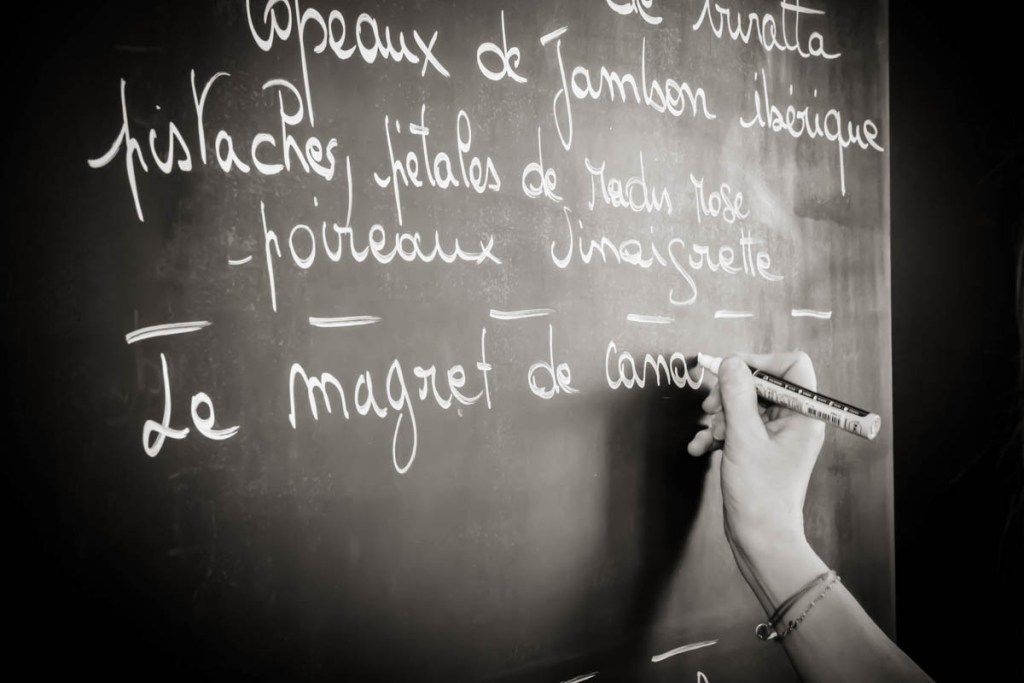 de burratta
Copeaux de Jambon ibérique
pistaches, pétales de radis rose
- poireaux vinaigrette
Le magret de cana